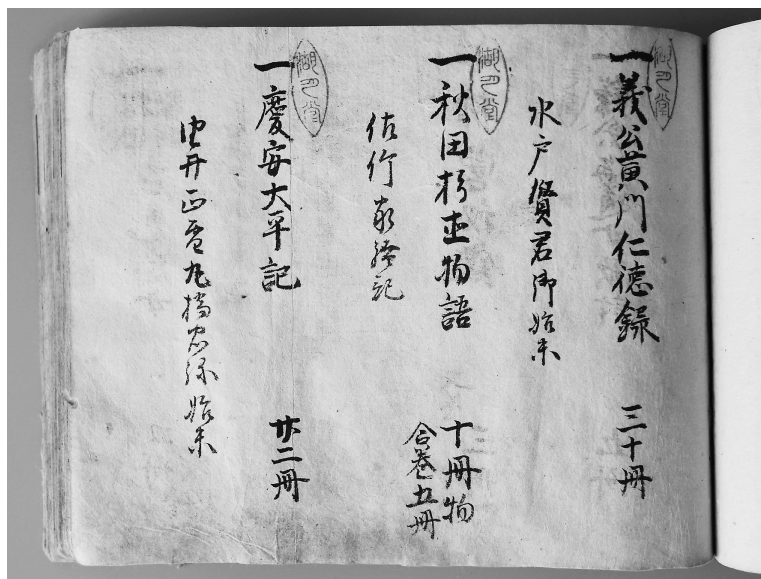 湖月堂
一義公黄門仁徳録 三十冊
水戸賢君御始末
湖月堂
一秋田杉直物語 十冊物
合巻五冊
佐竹家騒記
湖月堂
一慶安太平記 廿二冊
由井正雪丸橋忠弥始末